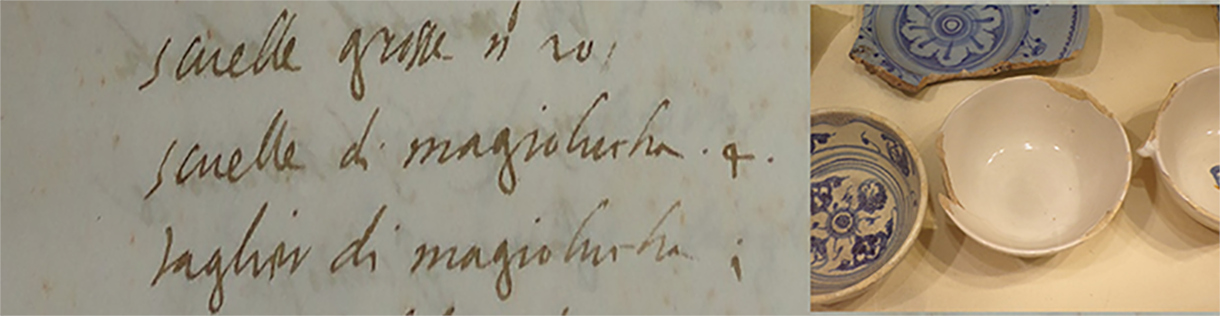 scuelle grosse n 20
scuelle di magiolicha . 4 .
taglier di magiolicha i